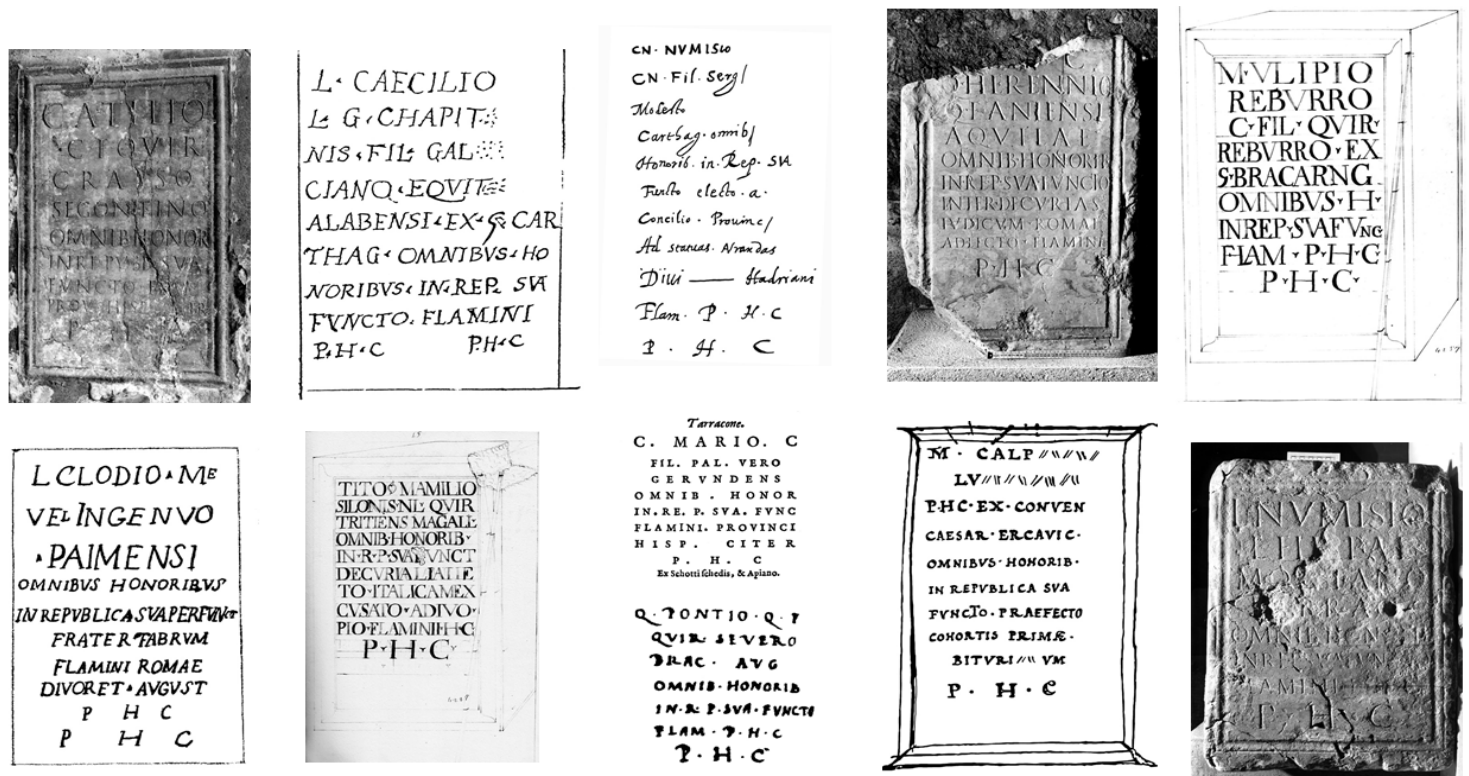 C ATILIO
C F QVIR
CRASSO
SEGONTINO
OMNIB HONOR
IN RE PVB SVA
FVNCTO
P
L· CAECILIO
L· G·CHAPIT
NIS·FIL GAL
CIANQ·EQVIT
ALABENSI·EX· CAR
THAG·OMNIBVS·HO
NORIBVS·IN·REP. SVA
FVNCTO. FLAMINI
P·H·C P·H·C
CN· NVMISIO
CN· Fil. Serg/
Modesto
Carthag. omnib/
Honorib. in. Rep. SVA
Functo electo. a.
Concilio. Prouinc/
Ad statuas. Aurandas
Diui — Hadriani
Flam. P. H. C
P. H. C
C
Q·HERENNIO
Q·F·ANIENSI
AQVILAE
OMNIB·HONORIB
IN·REP·SVA·FVNCTO
INTER·DECVRIAS
IVDICVM·ROMAE
ADLECTO·FLAMINI
P·H·C
M·VLIPIO
REBVRRO
C·FIL·QVIR·
REBVRRO·EX
BRACARNG
OMNIBVS·H·
INREP·SVAFVNG
FLAM·P·H·C
P·H·C·
4159
L CLODIO·ME
VEL INGENVO
·PAIMENSI
OMNIBVS HONORIBVS
IN REPVBLICA SVAPERFVNCT
FRATER FABRVM
FLAMINI ROMAE
DIVORET·AVGVST
P H C
P H C
15
TITO MAMILIO
SILONIS·NL· QVIR
TRITIENS MAGALL
OMNIB·HONORIB·
IN·R·P·SVA FVNCT
DECVRIALIALLE
TO·ITALICAMEX
CVSATO·A DIVO·
PIO·FLAMINI·H·C
P·H·C·
Tarracone.
C. MARIO. C
FIL. PAL. VERO
GERVNDENS
OMNIB. HONOR
IN. RE. P. SVA. FVNC
FLAMINI. PROVINCI
HISP. CITER
P. H. C
Ex Schotti schedis, & Apiano.
Q·PONTIO·Q·F
QVIR SEVERO
BRAC· AVG
OMNIB·HONORIB
IN·R·P·SVA·FVNCTO
FLAM·P·H·C
P·H·C
M· CALP
LV
P·HC·EX·CONVEN
CAESAR·ERCAVIC·
OMNIBVS·HONORIB·
IN REPVBLICA SVA
FVNCTO·PRAEFECTO
COHORTIS PRIMÆ·
BITVRI VM
P· H·C
L NVMISIO
L FIL PAL
MONTANO
OMNIB HONORIB
IN REP SVA FVNCTO
FLAMINI
P·H·C